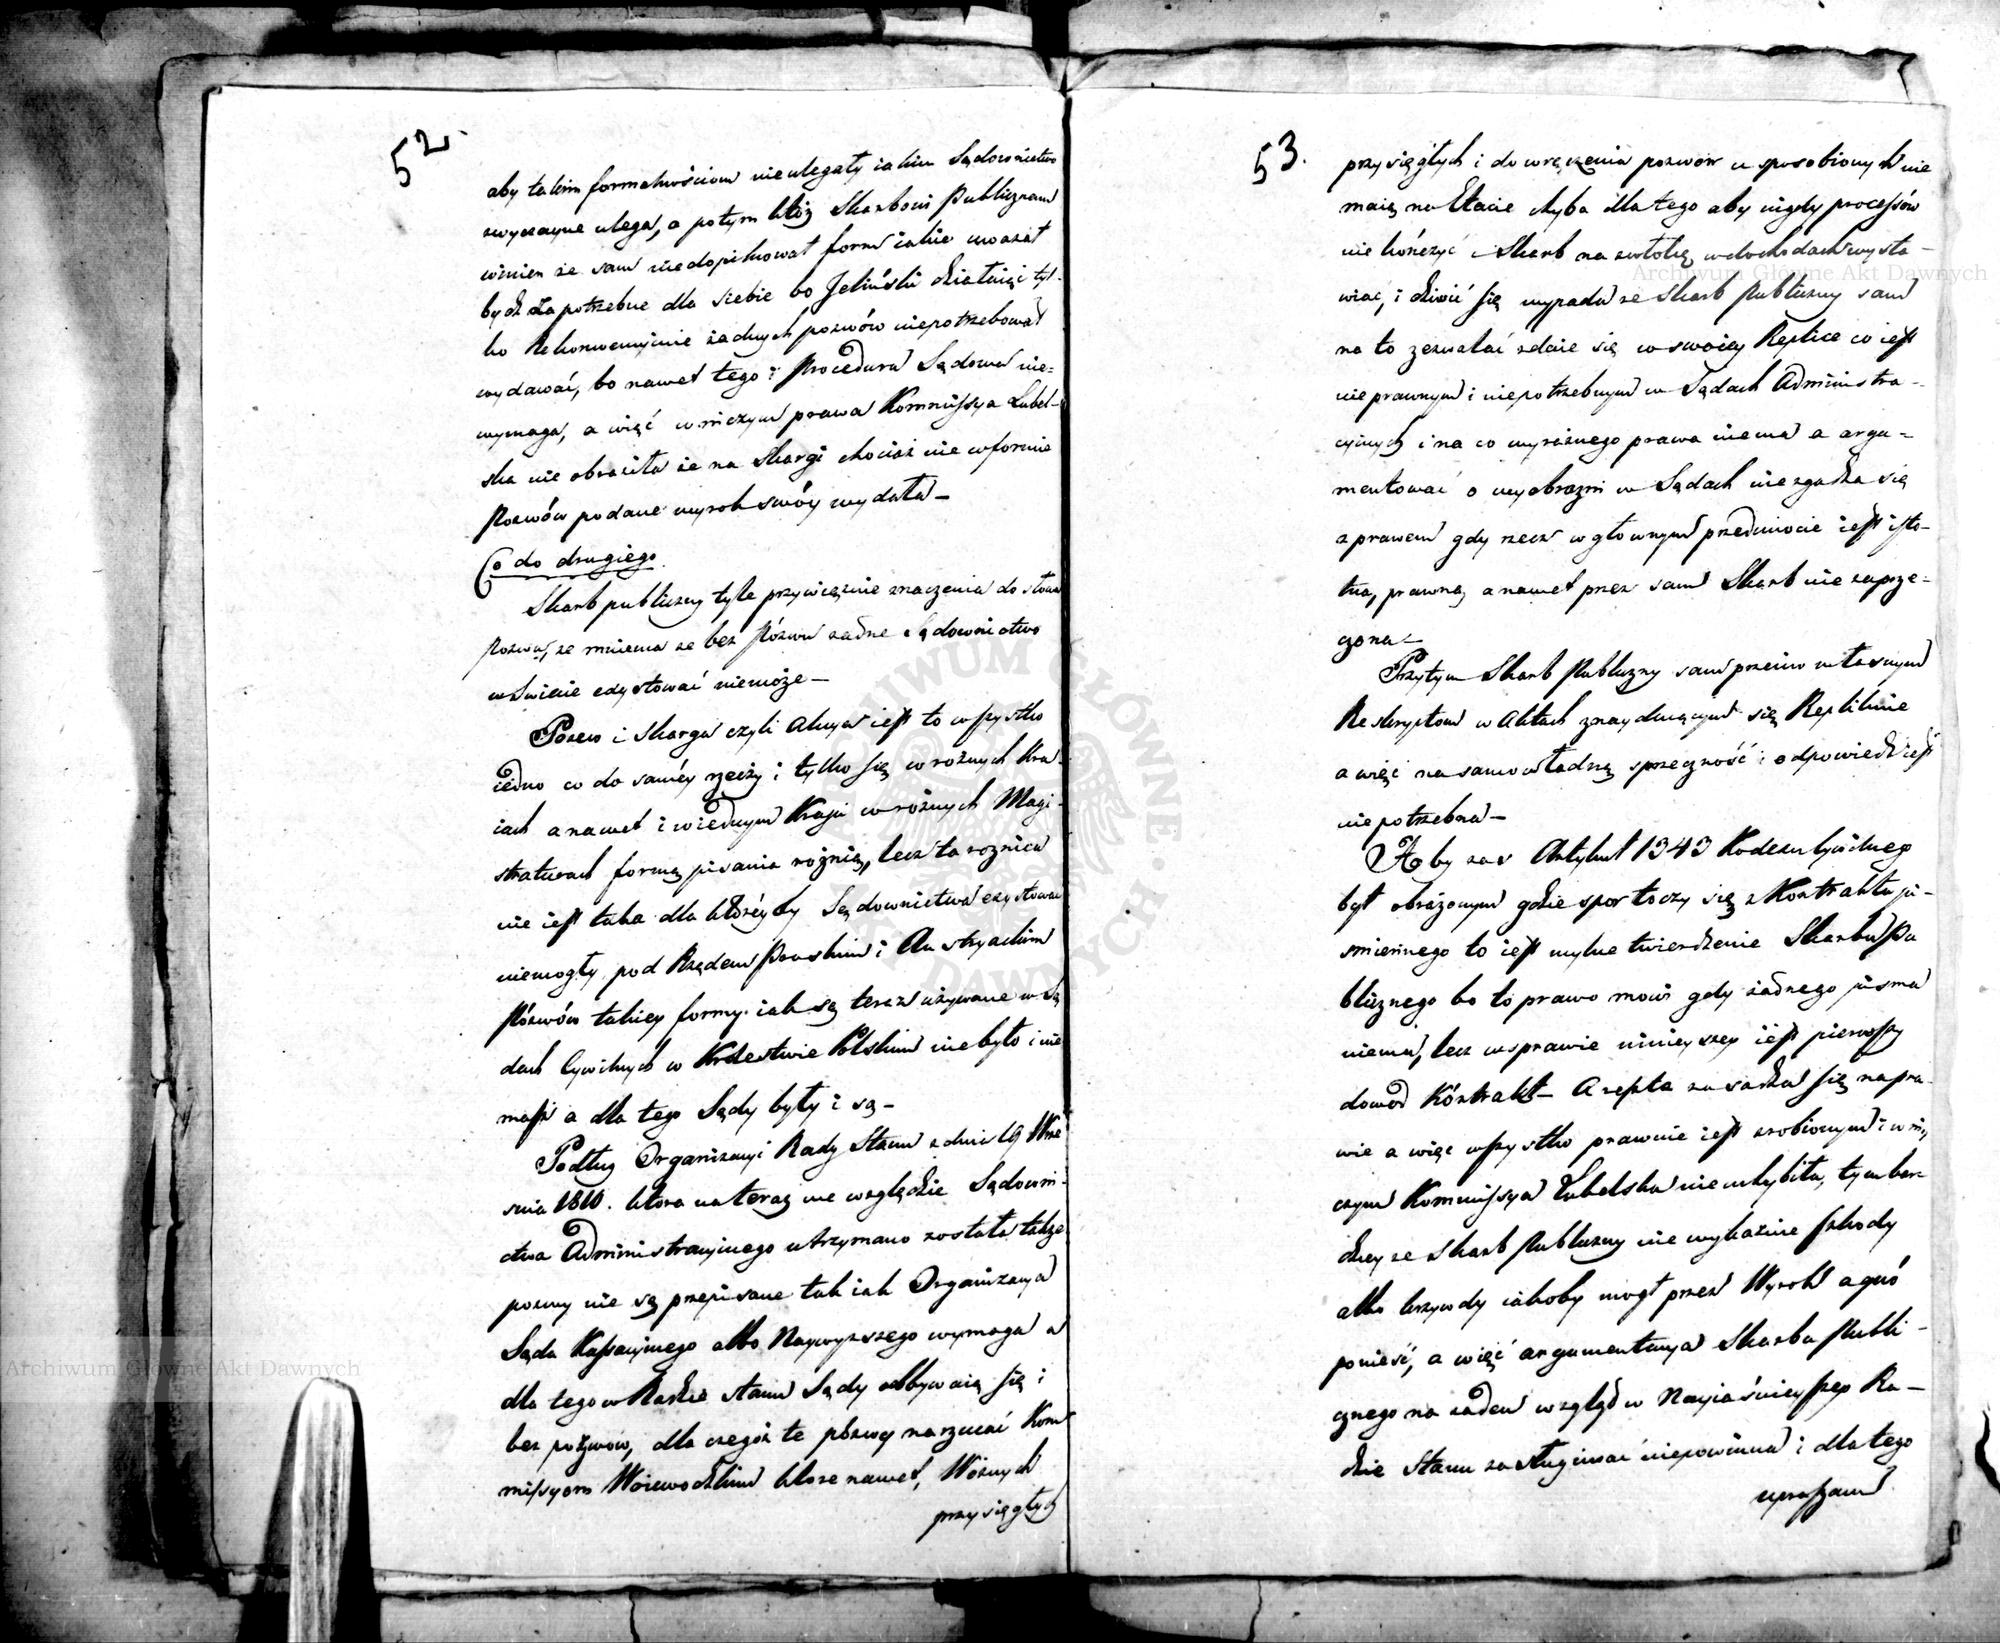 52
aby takim formalnościom nieulegały iakim Sądownictwo
zwyczayne ulega, a potym któż Skarbowi Publicznemu
winien że sam niedopilnował form iakie uważał
bydź za potrzebne dla siebie bo Jeliński działaiąc tyl-
ko Rekonwencyinie żadnych pozwów niepotrzebował
wydawać, bo nawet tego i Procedura Sądowa nie-
wymaga, a więc w niczym prawa Kommissya Lubel-
ska nie obraziła że na Skargi chociaż nie w formie
Pozwów podane wyrok swóy wydała —
Co do drugiego.
Skarb publiczny tyle przywięzuie znaczenia do słowa
pozwu, że mniema że bez Pózwu żadne Sądownictwo
w Świecie exystować niemoże —
Pozew i Skarga czyli Akcya iest to wszystko
iedno co do saméy rzeczy i tylko się w różnych Kra-
iach a nawet i w iednym Kraju w różnych Magi-
straturach formą pisania różnią, lecz ta roznica
nie iest taka dla któréyby Sądownictwa exystować
niemogły, pod Rządem Pruskim i Austryackim
Pózwów takiey formy iak są teraz używane w Są
dach Cywilnych w Królestwie Polskim nie było i nie
masz a dla tego Sądy były i są —
Podług Organizacyi Rady Stanu z dnia 19 Wrze
śnia 1810. która na teraz we względzie Sądowni-
ctwa Administracyinego utrzymana została także
pozwy nie są przepisane tak iak Organizacya
Sądu Kassacyinego albo Naywyższego wymaga a
dla tego w Radzie Stanu Sądy odbywaią się i
bez pozwów, dla czegóż te pózwy narzucać Kom
missyom Woiewodzkim które nawet, Wóznych
przysięgłych
53.
przysięgłych i do wręczenia pozwów usposobionych nie
maią na Etacie chyba dla tego aby nigdy processów
nie kończyć i Skarb na zwłokę w dochodach wysta-
wiać, i dziwić się wypada że Skarb Publiczny sam
na to zezwalać zdaie się w swoiey Replice co iest
nieprawnym i niepotrzebnym w Sądach Administra-
cyinych i na co wyraźnego prawa niema a argu-
mentować o wyobrazni w Sądach niezgadza się
z prawem gdy rzecz w głownym przedmiocie iest isto-
tną, prawną, a nawet przez sam Skarb nie zaprze-
czona —
Przytym Skarb Publiczny sam przeciw własnym
Reskryptom w Aktach znayduiącym się Replikuie
a więc na samowładną sprzeczność i odpowiedź iest
niepotrzebna —
Aby zaś Artykuł 1343 Kodexu Cywilnego
był obrażonym gdzie spor toczy się z Kontraktu pi-
śmiennego to iest mylne twierdzenie Skarbu Pu
blicznego bo to prawo mowi gdy żadnego pisma
niema, lecz w sprawie ninieyszey iest pierwszy
dowod Kóntrakt — A reszta zasadza się na pra-
wie a więc wszystko prawnie iest zrobionym i w ni-
czym Kommissya Lubelska nie uchybiła, tym bar-
dziey że Skarb Publiczny nie wykazuie szkody
albo krzywdy iakoby mogł przez Wyrok a quó
ponieść, a więc argumentacya Skarbu Publi-
cznego na żaden wzgląd w Nayiaśnieyszey Ra-
dzie Stanu zasługiwać niepowinna i dla tego
upraszam